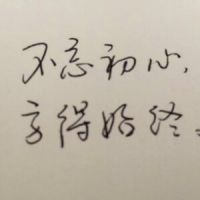 不忘初心,
方得始终。